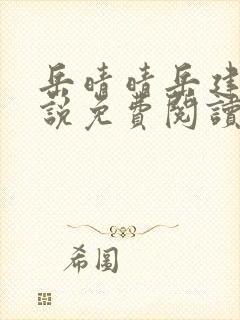 岳晴晴岳建
說免費閱讀
希圖